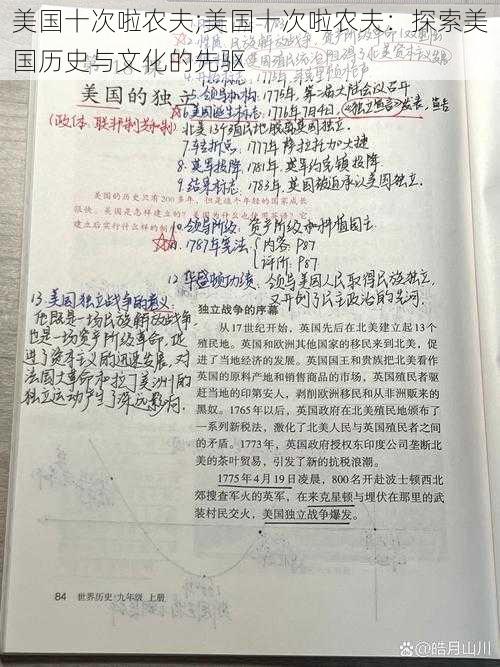 美国十次啦农夫;美国十次啦农夫：探索美
国历史与文化的先驱
美国的独立
(政体：联邦制共和制)
5.领导机构：1775年，第二届大陆会议召开
6.美国诞生标志：1776年7月4日，《独立宣言》发表，宣告
北美13个殖民地脱离英国独立.
7.转折点：1777年 萨拉托加大捷
8.英军投降：1781年，英军约克镇投降.
9.结束标志：1783年，英国被迫承认美国独立.
美国的历史只有200多年，但是这个年轻的国家成长
很快。美国是怎样建立的？美国为什么也使用英语？它
建立后实行什么样的制
10.领导阶级：资产阶级和种植园主
11.1787年宪法 内容：P87
评价：P87
12.华盛顿功绩：领导美国人民取得民族独立，
又开创了民主政治的先河.
13.美国独立战争的意义：
它既是一场民族解放战争
也是一场资产阶级革命，促
进了资本主义的迅速发展，对
法国大革命和拉丁美洲的
独立运动产生了深远影响.
独立战争的序幕
从17世纪开始，英国先后在北美建立起13个
殖民地。英国和欧洲其他国家的移民来到北美，促
进了当地经济的发展。英国国王和贵族把北美看作
英国的原料产地和销售商品的市场，英国殖民者驱
赶当地的印第安人，剥削欧洲移民和从非洲贩来的
黑奴。1765年以后，英国政府在北美殖民地颁布了
一系列新税法，激化了北美人民与英国殖民者之间
的矛盾。1773年，英国政府授权东印度公司垄断北
美的茶叶贸易，引发了新的抗税浪潮。
1775年4月19日凌晨，800名开赴波士顿西北
郊搜查军火的英军，在来克星顿与埋伏在那里的武
装村民交火，美国独立战争爆发。
84 世界历史 九年级 上册
@皓月山川